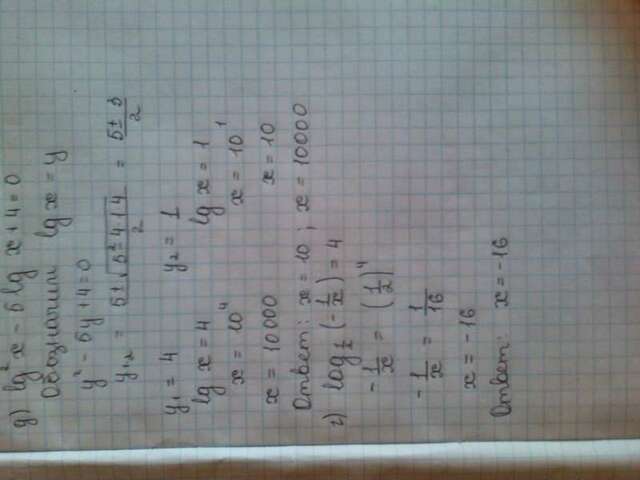 д) lg²x - 5 lg x + 4 = 0
Обозначим lg x = y
y² - 5y + 4 = 0
y₁,₂ = (5 ± √(5² - 4·4))/2 = (5 ± 3)/2
y₁ = 4 y₂ = 1
lg x = 4 lg x = 1
x = 10⁴ x = 10¹
x = 10000 x = 10
Ответ: x = 10 ; x = 10000
г) log_{1/2} (-1/x) = 4
-1/x = (1/2)⁴
-1/x = 1/16
x = -16
Ответ: x = -16